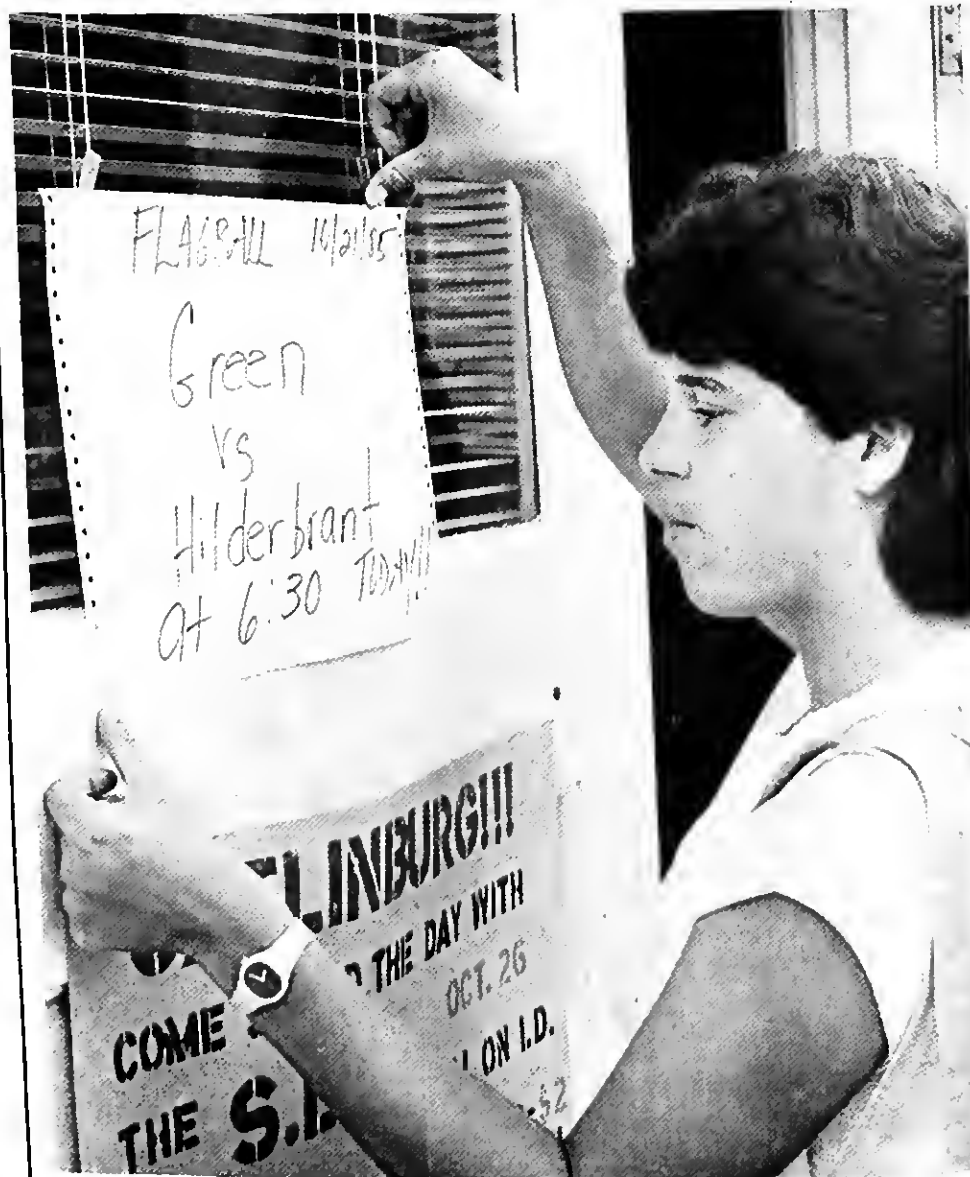 FLAGBALL 10/21/85
Green
vs
Hilderbrant
At 6:30 TODAY!!
LINBURG!!!
COME THE DAY WITH
THE S. OCT. 26
ON I.D.